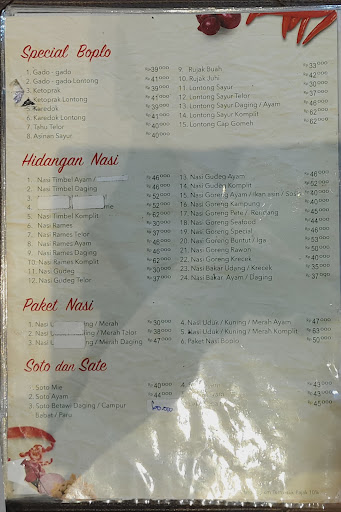 Special Boplo
1. Gado - gada Rp39.000
2. Gado - gada Lontong Rp41.000
3. Ketoprak Rp39.000
Ketoprak Lontong Rp41.000
5. Karedok Rp39.000
6. Karedok Lontong Rp41.000
7. Tahu Telor Rp40.000
8. Asinan Sayur
9. Rujak Buah Rp33.000
10. Rujak Juhi Rp42.000
11. Lontong Sayur Rp30.000
12. Lontong Sayur Telor Rp37.000
13. Lontong Sayur Daging / Ayam Rp46.000
14. Lontong Sayur Komplit Rp62.000
15. Lontong Cap Gomeh Rp62.000
Hidangan Nasi
1. Nasi Timbel Ayam / Rp46.000
2. Nasi Timbel Daging Rp46.000
3. Rp52.000
4. Rp52.000
5. Nasi Timbel Komplit Rp62.000
6. Nasi Rames
7. Nasi Rames Telor
8. Nasi Rames Ayam
9. Nasi Rames Daging
10. Nasi Rames Komplit Rp62.000
11. Nasi Gudeg Rp30.000
12. Nasi Gudeg Telor Rp37.000
13. Nasi Gudeg Ayam Rp46.000
14. Nasi Gudeg Komplit Rp52.000
15. Nasi Goreng Ayam
16. Nasi Goreng Kampung Rp40.000
17. Nasi Goreng Pete / Rendang Rp45.000
18. Nasi Goreng Seafood Rp44.000
19. Nasi Goreng Special
20. Nasi Goreng Buntut / Iga Rp53.000
21. Nasi Goreng Rawon Rp50.000
22. Nasi Goreng Krecek Rp40.000
23. Nasi Bakar Udang / Krecek Rp35.000
24. Nasi Bakar Ayam / Daging Rp37.000
Paket Nasi
1. Nasi / Merah Rp30.000
2. Nasi / Merah Telor Rp38.000
3. Nasi / Merah Daging Rp47.000
4. Nasi Uduk / Kuning / Merah Ayam Rp47.000
5. Nasi Uduk / Kuning / Merah Komplit Rp63.000
6. Paket Nasi Boplo Rp50.000
Soto dan Sate
1. Soto Mie Rp40.000
2. Soto Ayam Rp44.000
3. Soto Betawi Daging / Campur
Babat / Paru
Rp43.000
Rp43.000
Rp45.000